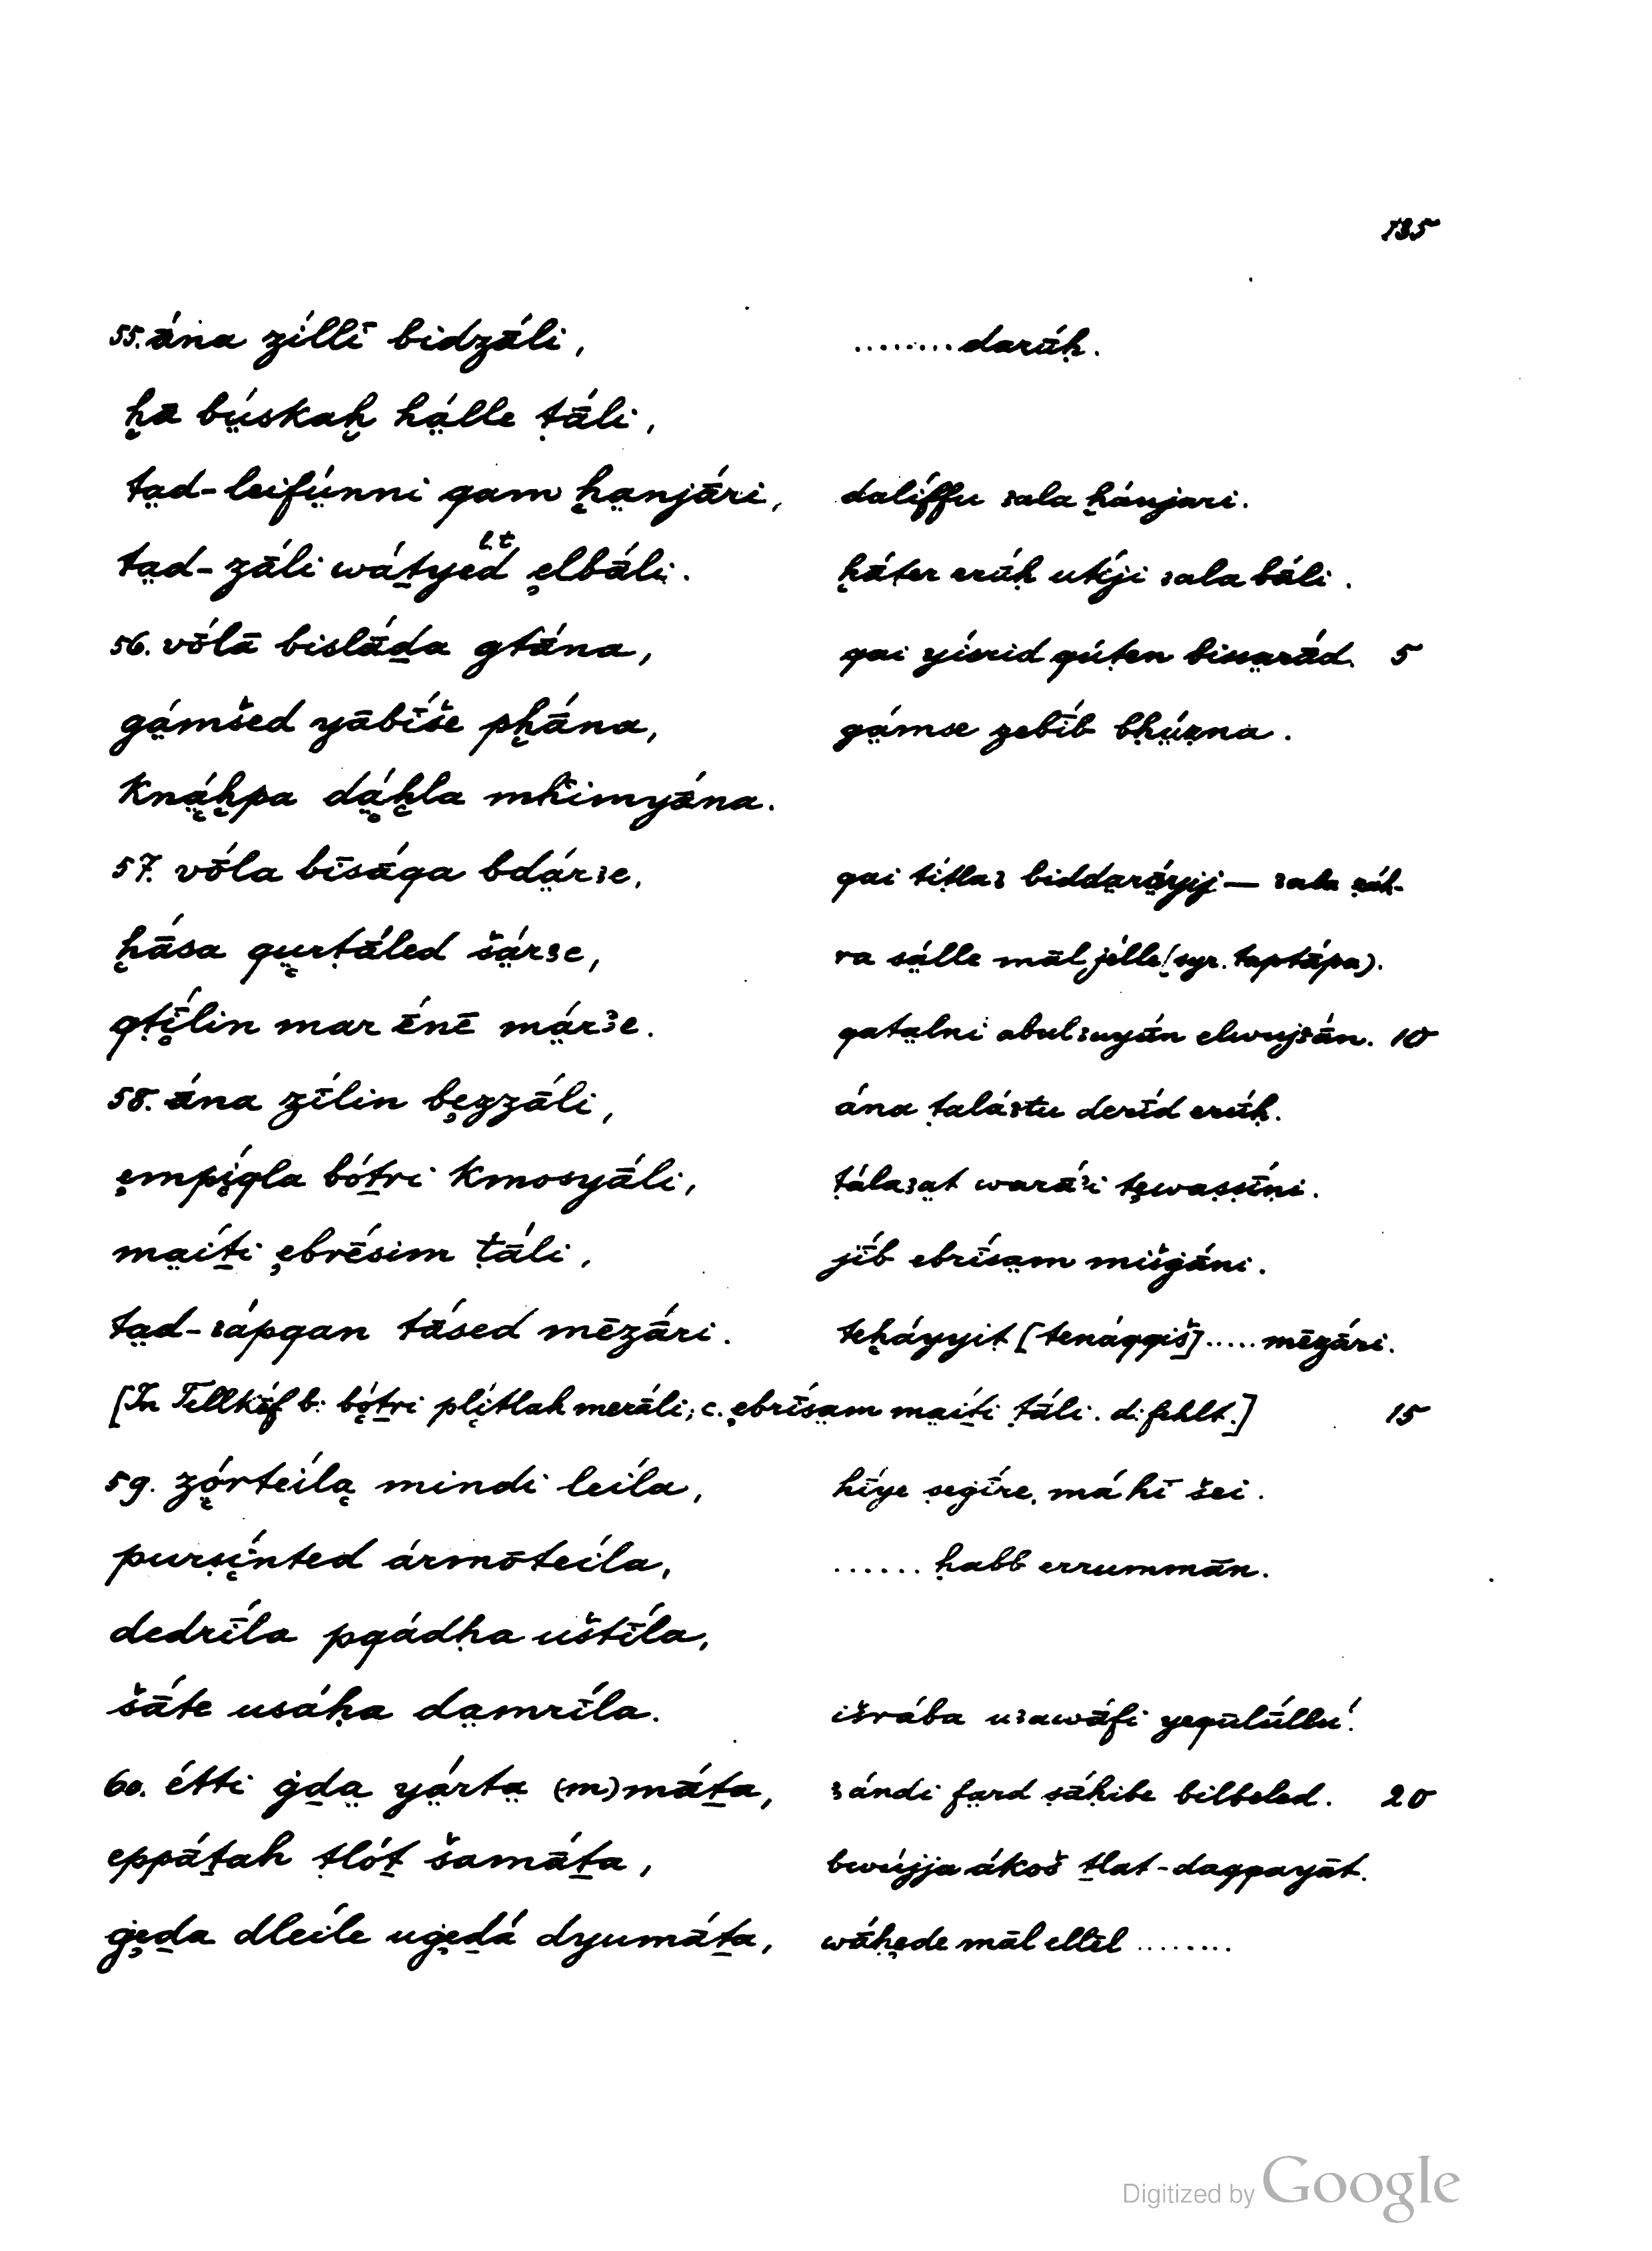 135
55. ā́na zíllī bidzā́li, ........darū́ḥ.
ḫā bṳ́skaḫ hä́lle ṭā́li,
ta̤d-leifṳ́nni qam ḫa̤njā́ri, dalíffu ꜣala ḫánjari.
ta̤d-zāĺi wáṯyed l.t ęlbā́li. ḫā́ṭer erū́ḥ utíji ꜣala bā́li.
56. vṓlā bislā́ḏa gtā́na, qai yíerid qúṭen bissa̤rā́d. 5
gä́mšed yābī́še pḫā́na, gä́mse zebī́b bḥṳ́ẓna.
Kná̤̜ḫpa dá̤̜ḫla mḣimyā́na.
57. vṓla bīsā́qa bdä́rꜣe, qai tíṭlaꜣ bidda̤rā̤́yij — ꜣala ṣáḫ-
ḫā́sa qṳrṭā́led šä́rꜣe, ra sä́lle māl jélle (syr. taptā́pa).
qṭī̜́lin mar ḗnē mä́rꜣe. qata̤lni abulꜣuyū́n elwujꜣā́n. 10
58. ā́na zī́lin bęzzā́li, ána ṭaláꜣtu derī́d erū́ḥ.
ęmpí̜qla bóṯri Kmosyā́li, ṭálaꜣa̤t warā́ꜣi tęwaṣṣī́ni.
ma̤íṯi ębrḗsim ṭā́li, jī́b ebrī́sa̤m mišgā́ni.
ta̤d-ꜣápqan ṭā́sed mēzā́ri. teḫáyyiṭ [tenáqqiš] ..... mēzā́ri.
[In Tellkēf b: bó̜ṯri plí̜ṭlah merā́li; c. ębrī́sa̤m ma̤íṯi ṭā́li. d: fehlt.] 15
59. zó̜rteíla̜ mindi leíla, hī́ye ṣegī́re, má hī šei.
purṣí̜nted ármōteíla, ...... ḥabb errummān.
dedrī́la pqádḥa uštī́la,
šā́te usáḥa da̤mrī́la. išrába uꜣawā́fi yeqūlū́llu!
60. étti ġḏa̤ yä́rta̤ (m)mā́ṯa, ꜣándi fa̤rd ṣā́ḥibe bilbeled. 20
eppā́ṯah ṭlóṯ šamā́ṯa, bwújja ákoš ṯlat-daqqayāt.
ġęḏa dleíle uġęḏá dyumā́ṯa, wā́ḥęde māl ellēl ........
Digitized by Google